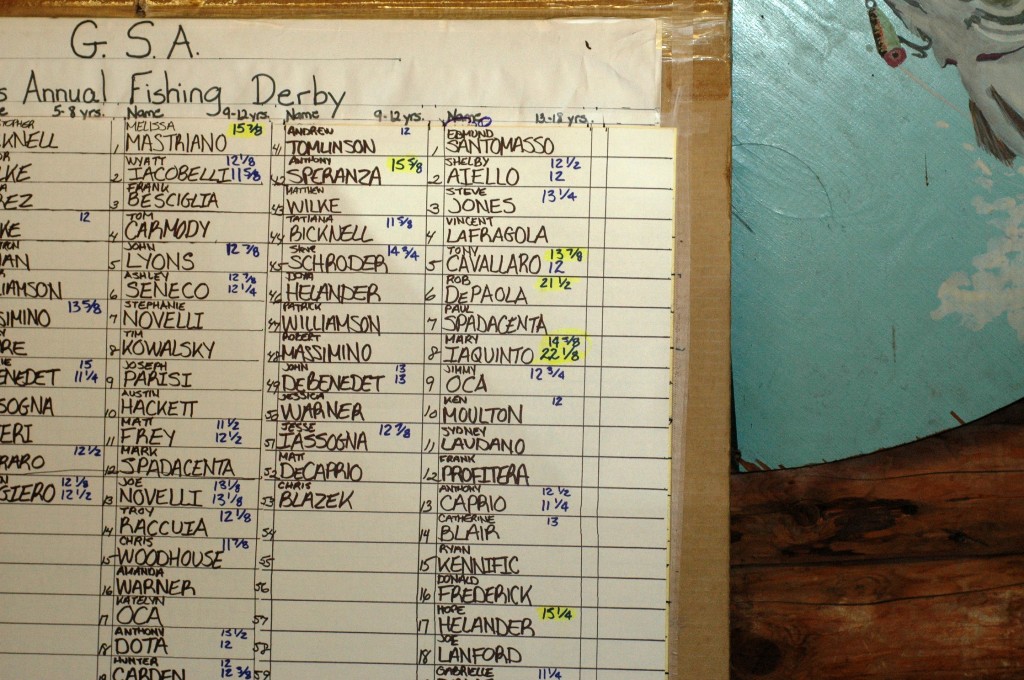 G. S. A.
Annual Fishing Derby
5-8 yrs. Name 9-12 yrs. Name 9-12 yrs. Name 13-18 yrs.
KNELL 1 MELISSA MASTRIANO 15 7/8 41 ANDREW TOMLINSON 12 1 EDMUND SANTOMASSO
LKE 2 WYATT IACOBELLI 12 1/8 11 5/8 42 ANTHONY SPERANZA 15 5/8 2 SHELBY AIELLO 12 1/2 12
REZ 3 FRANK BESCIGLIA 43 MATTHEW WILKE 3 STEVE JONES 13 1/4
KE 12 4 TOM CARMODY 44 TATIANA BICKNELL 11 5/8 4 VINCENT LAFRAGOLA
MAN 5 JOHN LYONS 12 7/8 45 SCHRODER 14 3/4 5 TONY CAVALLARO 13 7/8 12
LIAMSON 6 ASHLEY SENECO 12 7/8 12 1/4 46 HELANDER 6 ROB DEPAOLA 21 1/2
SIMINO 13 5/8 7 STEPHANIE NOVELLI 47 PATRICK WILLIAMSON 7 PAUL SPADACENTA
RE 8 TIM KOWALSKY 48 ROBERT MASSIMINO 8 MARY IAQUINTO 14 3/8 22 1/8
ENEDET 15 11 1/4 9 JOSEPH PARISI 49 JOHN DEBENEDET 13 13 9 JIMMY OCA 12 3/4
SOGNA 10 AUSTIN HACKETT 50 JESSICA WARNER 10 KEN MOULTON 12
ERI 11 MATT FREY 11 1/2 12 1/2 51 JESSE IASSOGNA 12 7/8 11 SYDNEY LAUDANO
RARO 12 1/2 12 MARK SPADACENTA 52 MATT DECAPRIO 12 FRANK PROFITERA
GIERO 12 1/2 12 1/2 13 JOE NOVELLI 13 1/8 13 1/8 53 CHRIS BLAZEK 13 ANTHONY CAPRIO 12 1/2 11 1/4
14 TROY RACCUIA 12 1/8 54 14 CATHERINE BLAIR 13
15 CHRIS WOODHOUSE 11 7/8 55 15 RYAN KENNIFIC
16 AMANDA WARNER 56 16 DONALD FREDERICK
17 KATELYN OCA 57 17 HOPE HELANDER 15 1/4
18 ANTHONY DOTA 13 1/2 12 58 18 JOE LANFORD
HUNTER CARDEN 12 12 3/8 59 GABRIELLE 11 1/4